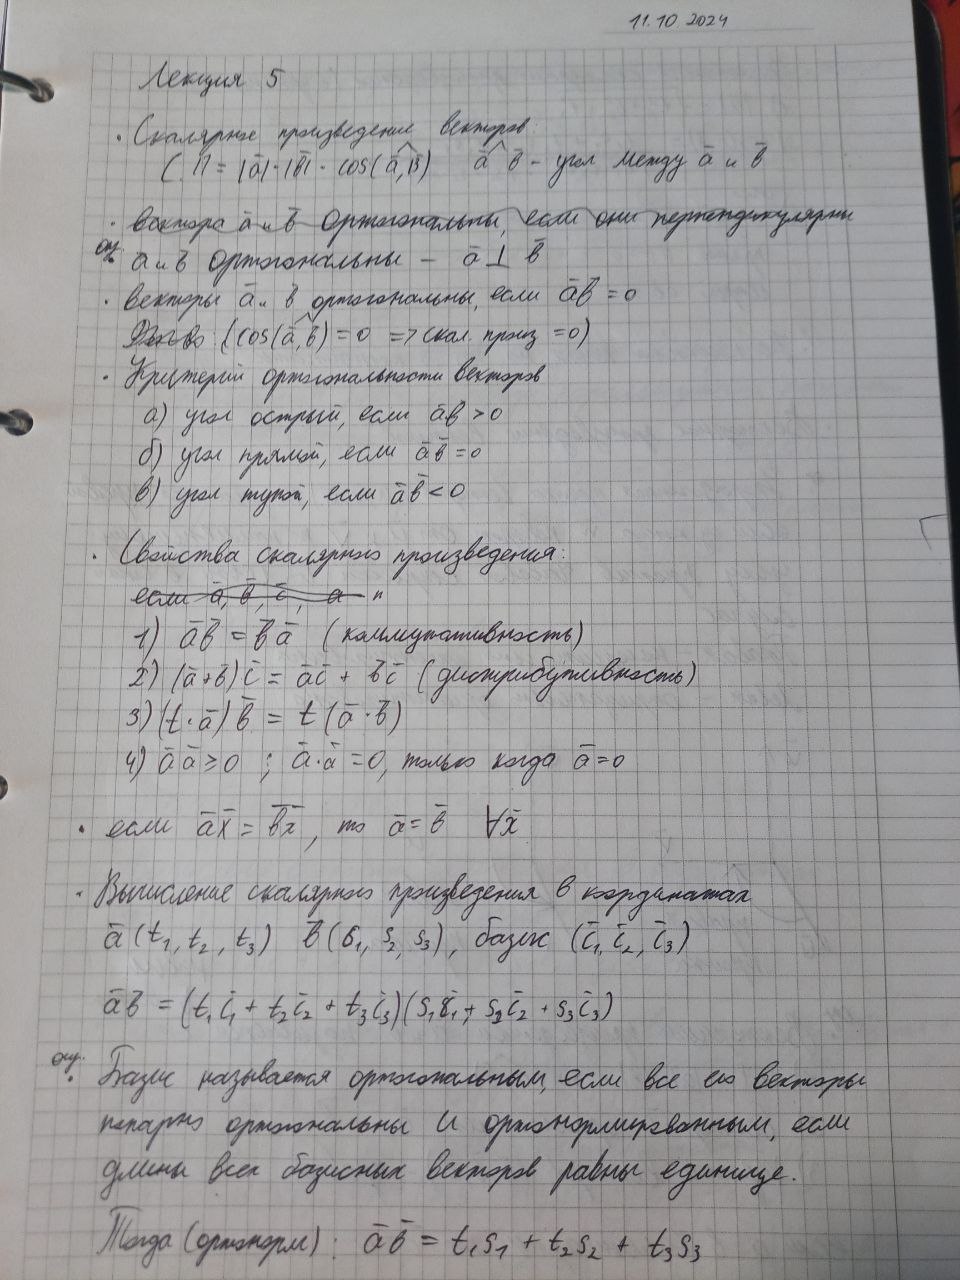 11.10.2024
Лекция 5
· Скалярное произведение векторов:
С.П = |a̅|·|b̅| · cos(a̅,^b̅) a̅ ^ b̅ – угол между a̅ и b̅
· вектора a̅ и b̅ ортогональны, если они перпендикулярны
a̅ и b̅ ортогональны – a̅ ⊥ b̅
· векторы a̅ и b̅ ортогональны, если a̅b̅ = 0
(cos(a̅,^b̅) = 0 => скал. произ = 0)
· Критерий ортогональности векторов
а) угол острый, если a̅b̅ > 0
б) угол прямой, если a̅b̅ = 0
в) угол тупой, если a̅b̅ < 0
· Свойства скалярного произведения:
если a̅, b̅, c̅, a
1) a̅b̅ = b̅a̅ (коммутативность)
2) (a̅+b̅)c̅ = a̅c̅ + b̅c̅ (дистрибутивность)
3) (t·a̅)b̅ = t(a̅·b̅)
4) a̅a̅ ≥ 0 ; a̅·a̅ = 0, только когда a̅ = 0
· если a̅x̅ = b̅x̅, то a̅ = b̅ ∀x̅
· Вычисление скалярного произведения в координатах
a̅(t₁, t₂, t₃) b̅(s₁, s₂, s₃), базис (c̅₁, c̅₂, c̅₃)
a̅b̅ = (t₁c̅₁ + t₂c̅₂ + t₃c̅₃)(s₁c̅₁ + s₂c̅₂ + s₃c̅₃)
· Базис называется ортогональным, если все его векторы
попарно ортогональны и ортонормированным, если
длины всех базисных векторов равны единице.
Тогда (ортонорм): a̅b̅ = t₁s₁ + t₂s₂ + t₃s₃